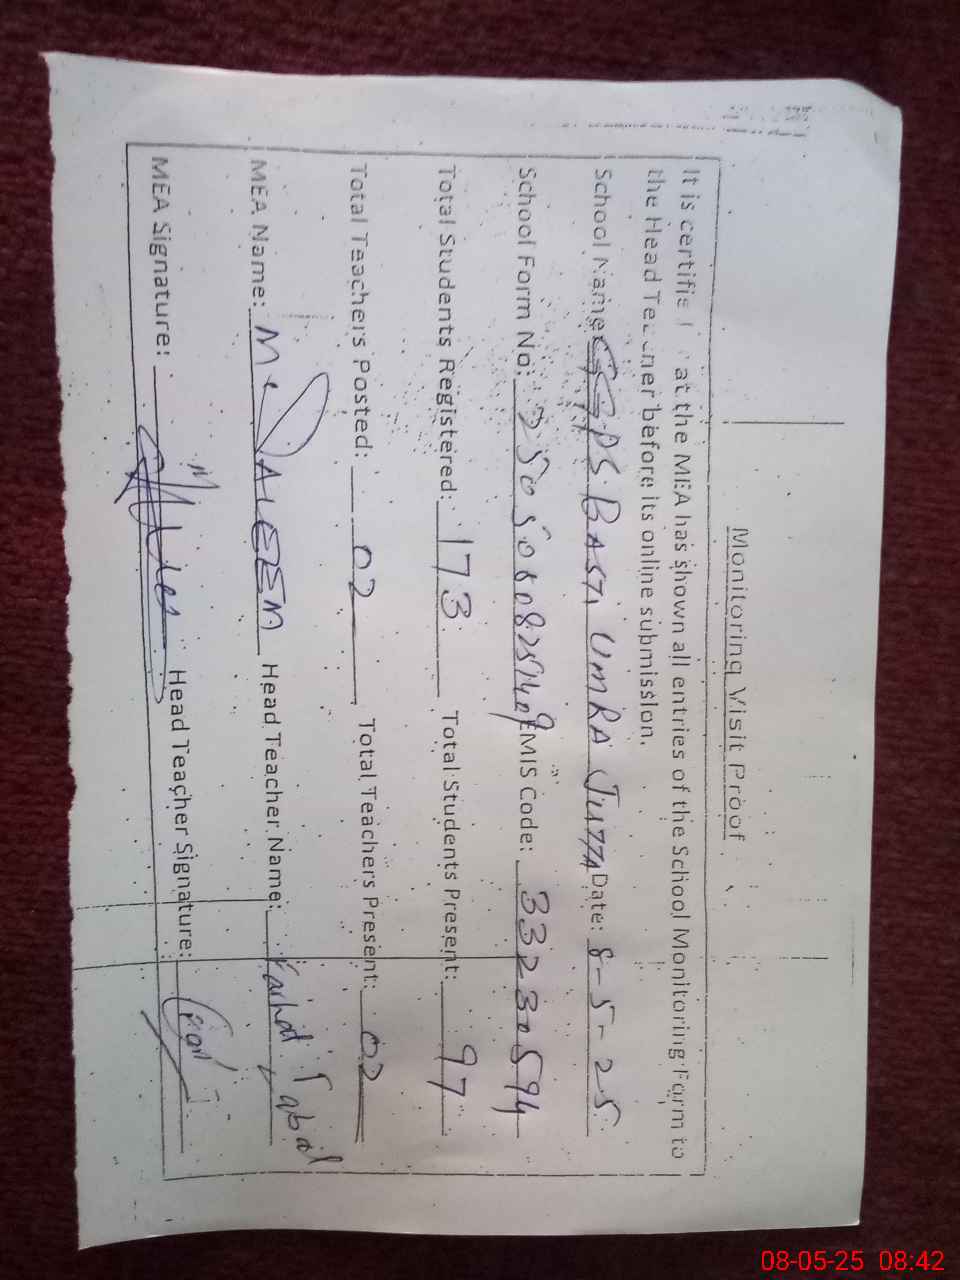 Monitoring Visit Proof
It is certifie at the MEA has shown all entries of the School Monitoring Form to
the Head Teacher before its online submission.
School Name GGPS BASTI UMRA JUTTA Date: 8-5-25
School Form No: EMIS Code: 33230594
Total Students Registered: 173 Total Students Present: 97
Total Teachers Posted: 02 Total Teachers Present: 02
MEA Name: M. SALEEM Head Teacher Name:
MEA Signature: Head Teacher Signature:
08-05-25 08:42